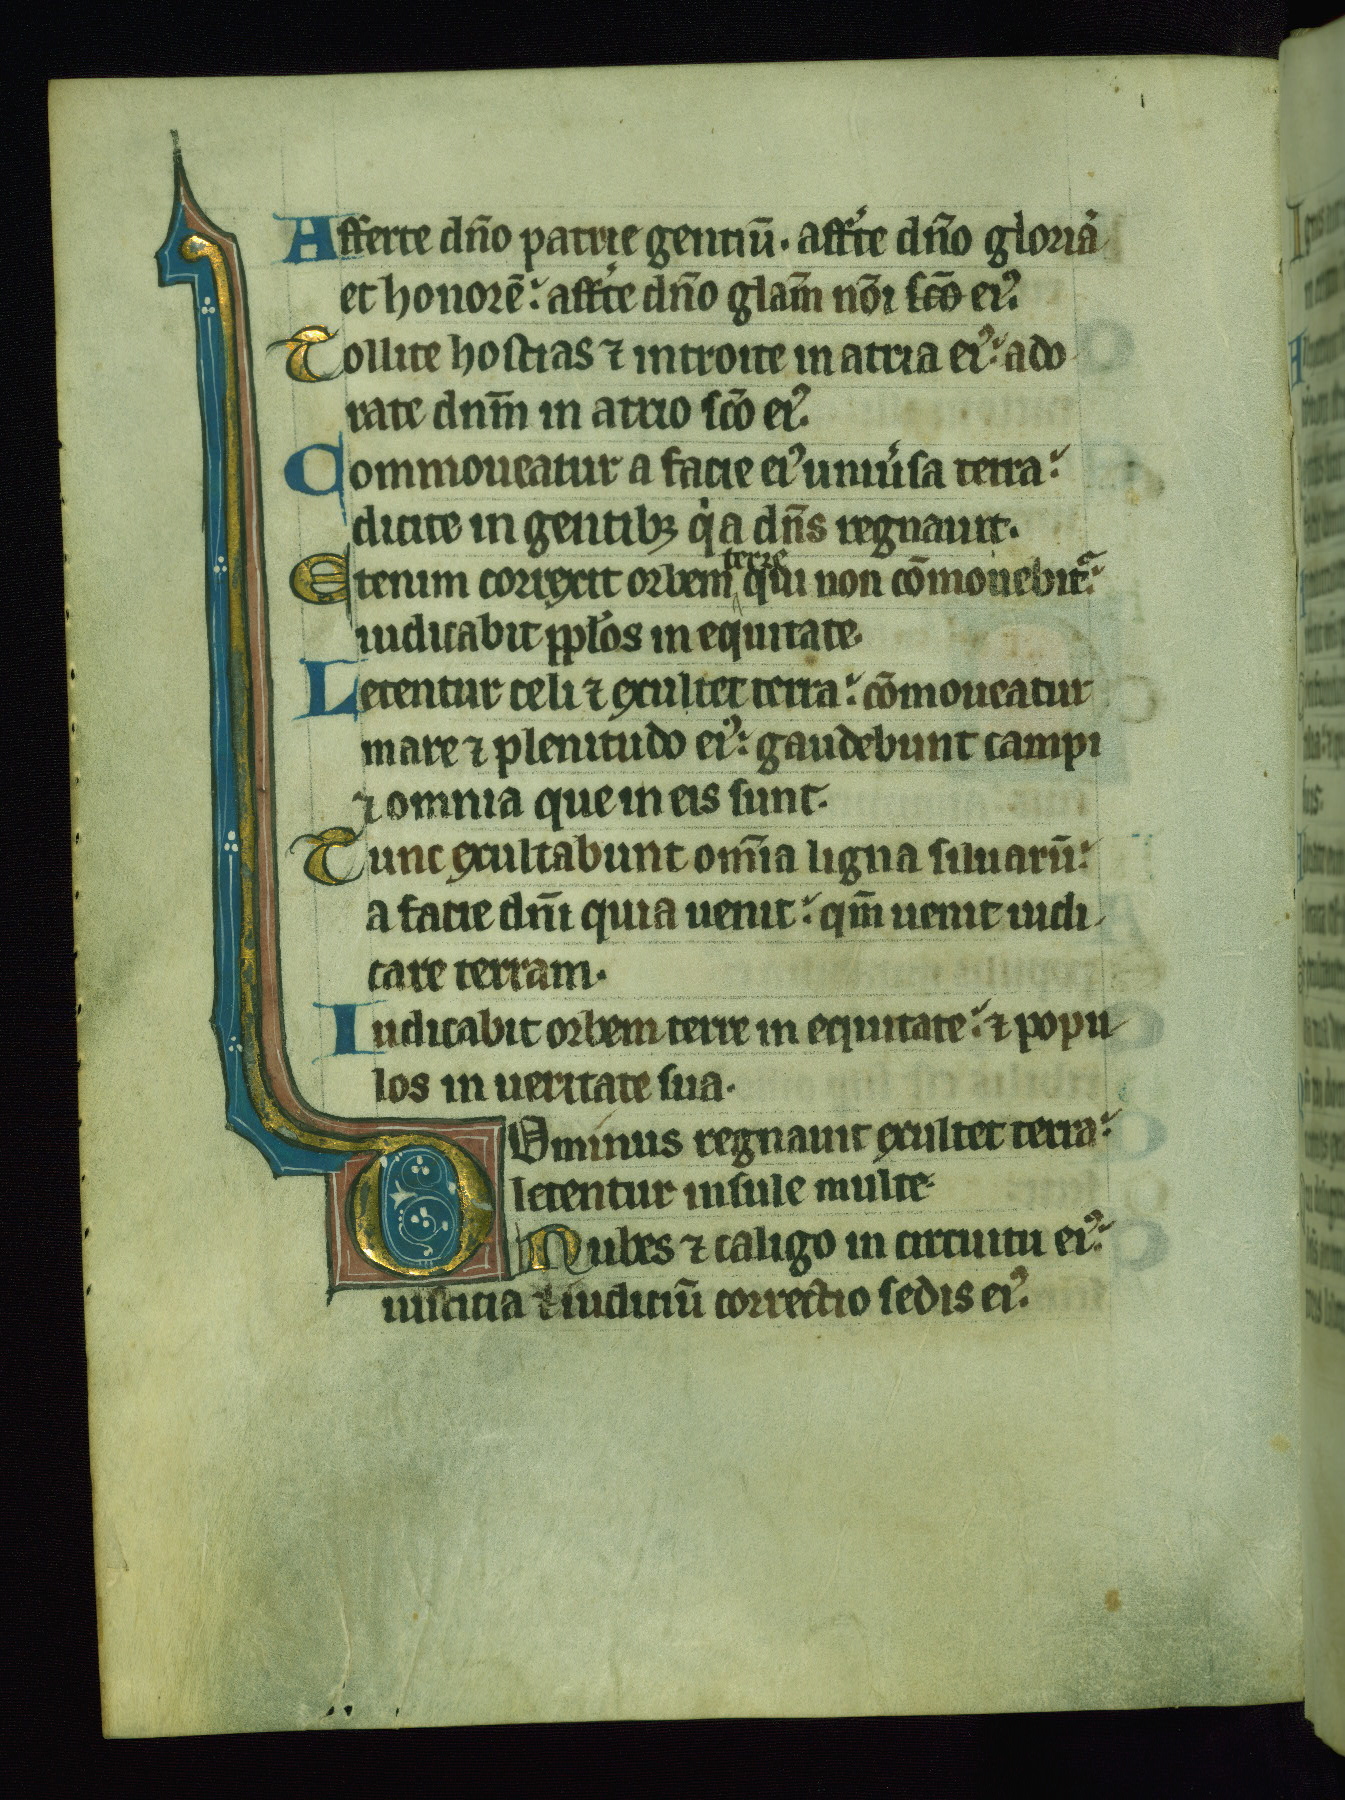 Afferte dn̄o patrie gentiū. affe͛te dn̄o gloriā
et honorē: affe͛te dn̄o glam̄ nōi sc̄o ei᷒.
Tollite hostias ⁊ introite in atria ei᷒: ado
rate dnm̄ in atrio sc̄o ei᷒.
Commoueatur a facie ei᷒ uniu͛sa terra:
dicite in gentibꝫ qͥa dn̄s regnauit.
Etenim correxit orbem terre qui non cōmouebit᷑:
iudicabit pplo͛s in equitate.
Letentur celi ⁊ exultet terra: cōmoueatur
mare ⁊ plenitudo ei᷒: gaudebunt campi
⁊ omnia que in eis sunt.
Tunc exultabunt om̄ia ligna siluarū:
a facie dnī quia uenit: qm̄ uenit iudi
care terram.
Iudicabit orbem terre in equitate: ⁊ popu
los in ueritate sua.
Dominus regnauit exultet terra:
letentur insule multe.
Nubes ⁊ caligo in circuitu ei᷒:
iusticia ⁊ iudiciū correctio sedis ei᷒.